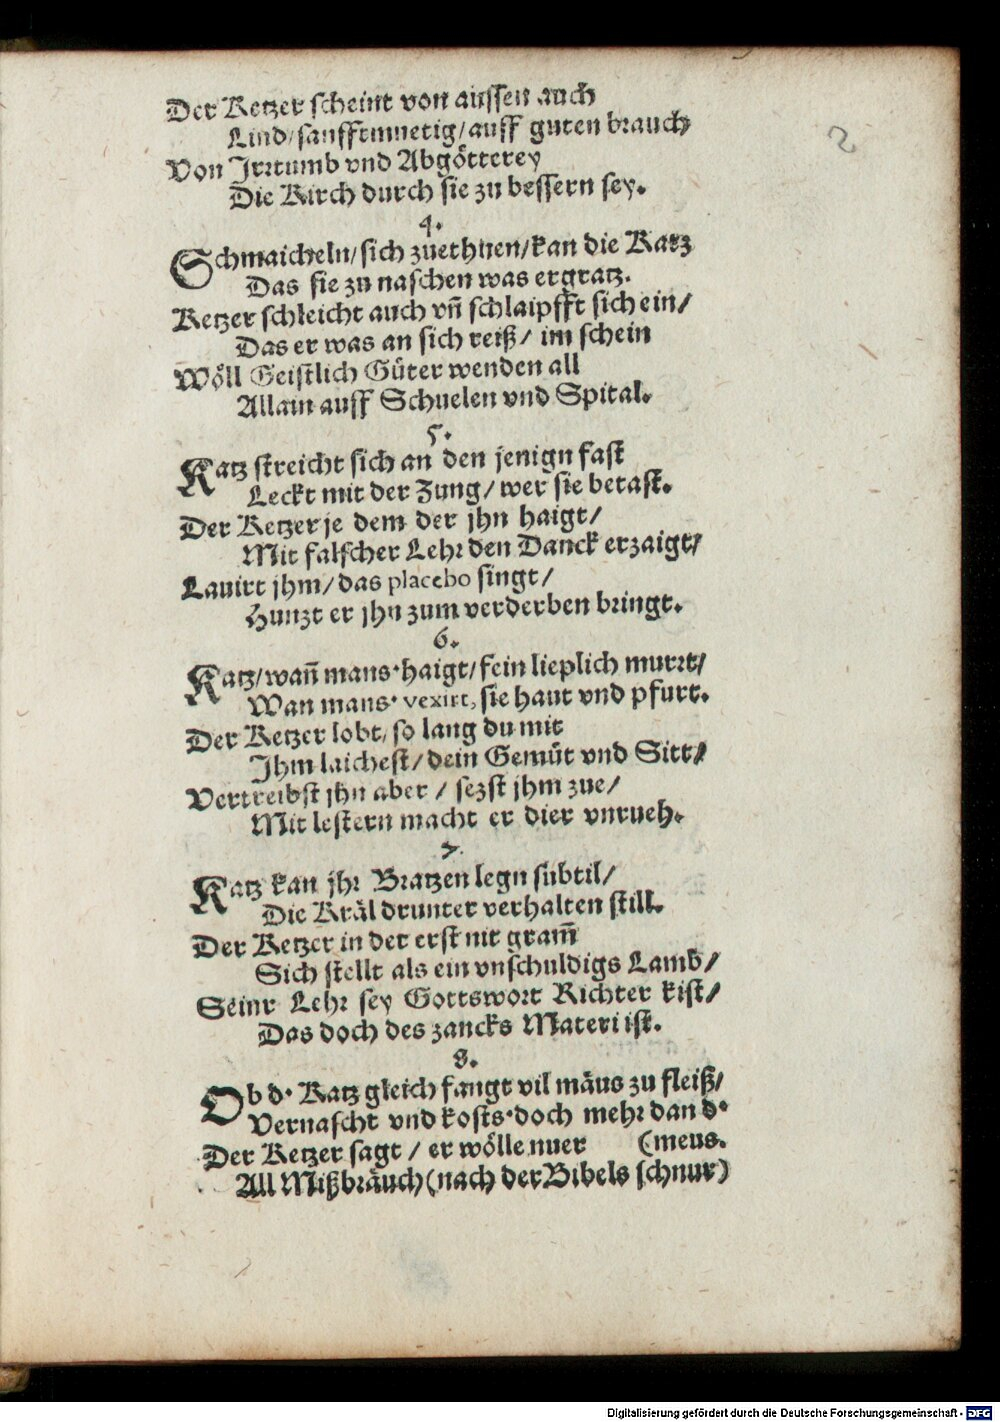 Der Ketzer scheint von aussen auch
Lind/sanfftmuetig/auff guten brauch
Von Irrtumb vnd Abgötterey
Die Kirch durch sie zu bessern sey.
4.
Schmaicheln/sich zuethuen/kan die Katz
Das sie zu naschen was ergratz.
Ketzer schleicht auch vn̄ schlaipfft sich ein/
Das er was an sich reiß/ im schein
Wöll Geistlich Güter wenden all
Allain auff Schuelen vnd Spital.
5.
Katz streicht sich an den jenign fast
Leckt mit der Zung/wer sie betast.
Der Ketzer je dem der jhn haigt/
Mit falscher Lehr den Danck erzaigt/
Lauirt jhm/das placebo singt/
Hunzt er jhn zum verderben bringt.
6.
Katz/wan̄ mans haigt/fein lieplich murrt/
Wan mans vexirt, sie haut vnd pfurt.
Der Ketzer lobt/so lang du mit
Ihm laichest/dein Gemüt vnd Sitt/
Vertreibst jhn aber / sezst jhm zue/
Mit lestern macht er dier vnrueh.
7.
Katz kan jhr Bratzen legn subtil/
Die Kräl drunter verhalten still.
Der Ketzer in der erst nit gram̄
Sich stellt als ein vnschuldigs Lamb/
Seinr Lehr sey Gottswort Richter kist/
Das doch des zancks Materi ist.
8.
Ob d' Katz gleich fangt vil mäus zu fleiß/
Vernascht vnd kosts doch mehr dan d'
Der Ketzer sagt / er wölle nuer (meus.
All Mißbräuch (nach der Bibels schnur)
2
Digitalisierung gefördert durch die Deutsche Forschungsgemeinschaft - DFG